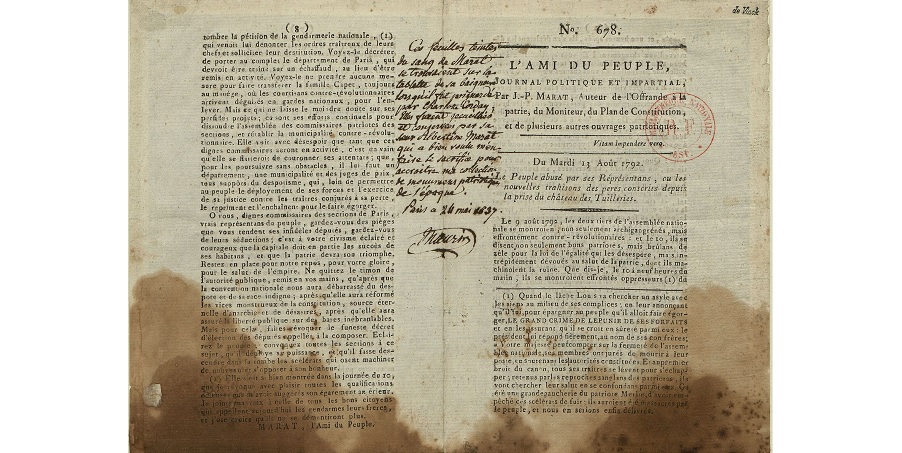 de Vinck
( 8 )
tomber la pétition de la gendarmerie nationale, (1)
qui venait lui dénoncer les ordres traîtreux de leurs
chefs et sollicitee leur destitution. Voyez-le décréter
de porter au complet le département de Paris, qui
devroit être traîné sur un échaffaud, au lieu d'être
remis en activité. Voyez-le ne prendre aucune me-
sure pour faire transférer la famille Capet, toujours
au manège, où les courtisans contre-révolutionnaires
arrivent déguisés en gardes nationaux, pour l'en-
lever. Mais ce qui ne laisse le moindre doute sur ses
perfides projets; ce sont ses efforts continuels pour
dissoudre l'assemblée des commissaires patriotes des
sections, et rétablir la municipalité contre-révolu-
tionnaire. Elle voit avec désespoir que tant que ces
dignes commissaires seront en activité, c'est en vain
qu'elle se flatteroit de couronner ses attentats; que,
pour les poursuivre sans obstacle, il lui faut un
département, une municipalité et des juges de paix,
tous suppôts du despotisme, qui, loin de permettre
au peuple le déployement de ses forces et l'exercice
de sa justice contre les traîtres conjurés à sa perte,
le repriment et l'enchaînent pour le faire égorger.
O vous, dignes commissaires des sections de Paris,
vrais représentans du peuple, gardez-vous des pièges
que vous tendent ses infidèles députés, gardez-vous
de leurs séductions; c'est à votre civisme éclairé et
courageux que la capitale doit en partie les succès de
ses habitans, et que la patrie devra son triomphe.
Restez en place pour notre repos, pour votre gloire,
pour le salut de l'empire. Ne quittez le timon de
l'autorité publique, remis en vos mains, qu'après que
la convention nationale nous aura débarrassé du des-
pote et de sa race indigne; après qu'elle aura réformé
les vices monstrueux de la constitution, source éter-
nelle d'anarchie et de désastres; après qu'elle aura
assuré la liberté publique sur des bases inébranlables.
Mais pour cela, faites révoquer le funeste décret
d'élection des députés appelés à la composer. Eclai-
rez le peuple, convoquez toutes les sections à ce
sujet, qu'il déploye sa puissance, et qu'il fasse des-
cendre dans la tombe les scélérats qui osent machiner
de nouveau et s'opposer à son bonheur.
MARAT, l'Ami du Peuple.
Ces feuilles teintes
du sang de Marat
se trouvaient sur la
tablette de sa baignoire
lorsqu'il fut
par Charlotte Corday;
elles furent recueillies
et conservées par sa
sœur Albertine Marat
qui a bien voulu m'en
faire le sacrifice pour
accroître ma collection
de monumens patriotiques
de l'époque.
Paris a 26 mai 1837.
Maurin
No. 678.
L'AMI DU PEUPLE,
JOURNAL POLITIQUE ET IMPARTIAL,
Par J.-P. MARAT, Auteur de l'Offrande à la
patrie, du Moniteur, du Plan de Constitution,
et de plusieurs autres ouvrages patriotiques.
Vitam impendere vero.
Du Mardi 13 Août 1792.
Le Peuple abusé par ses Représentans, ou les
nouvelles trahisons des peres conscrits depuis
la prise du château des Tuilleries.
Le 9 août 1792, les deux tiers de l'assemblée natio-
nale se montroient non seulement archigangrénés, mais
effrontément contre-révolutionnaires: et le 10, ils se
disent non seulement bons patriotes, mais brûlans de
zèle pour la loi de l'égalité qui les désespère, mais in-
trépidement dévoués au salut de la patrie, dont ils ma-
chinoient la ruine. Que dis-je, le 10 à neuf heures du
matin, ils se montroient effrontés oppresseurs (1) du
(1) Quand le lâche Louis va chercher un asyle avec
les siens au milieu de ses complices, en leur annonçant
qu'il vient pour épargner au peuple qu'il alloit faire égor-
ger, LE GRAND CRIME DE LE PUNIR DE SES FORFAITS
et en les assurant qu'il se croit en sûreté parmi eux: le
président lui répond fièrement, au nom de ses confrères;